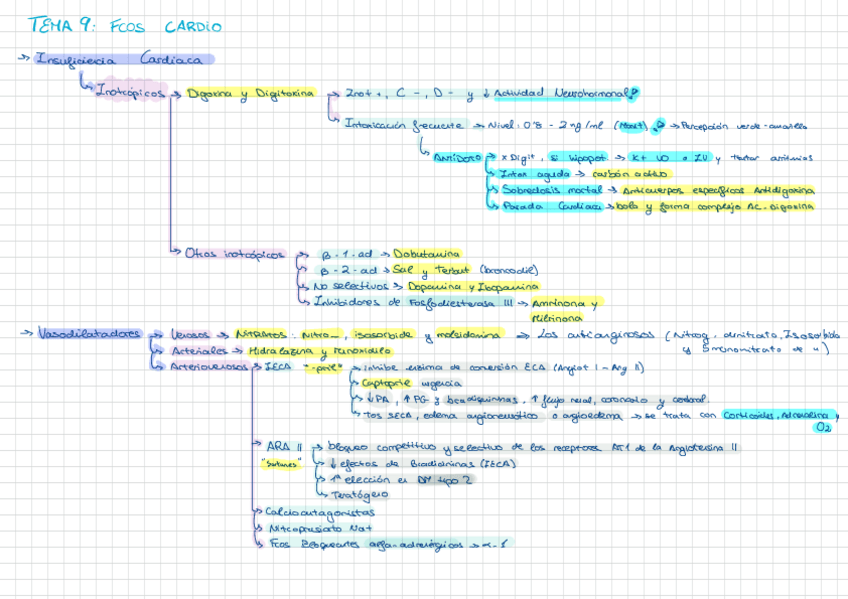 TEMA 9: FCOS CARDIO
→ Insuficiencia Cardiaca
Inotrópicos → Digoxina y Digitoxina → Inot +, C -, D - y ↓ Actividad Neurohormonal
Intoxicación frecuente → Nivel: 0'8 - 2 ng/ml → Percepción verde-amarilla
ANTÍDOTO → x Digit, si hipopot → K+ VO o IV y tratar arritmias
Intox aguda → carbón activo
Sobredosis mortal → Anticuerpos específicos Antidigoxina
Parada Cardiaca → bolo y forma complejo Ac-digoxina
Otros inotrópicos → β-1-ad → Dobutamina
β-2-ad → Sal y Terbut (broncodil)
No selectivos → Dopamina y Ibopamina
Inhibidores de Fosfodiesterasa III → Amrinona y
Milrinona
→ Vasodilatadores → Venosos → NITRATOS: Nitro_, isosorbide y molsidomina → Los antianginosos (Nitrog, dinitrato, Isosorbida
y 5 mononitrato de ")
Arteriales → Hidralazina y Minoxidilo
Arteriovenosos → IECA "-pril" → Inhibe enzima de conversión ECA (Angiot I - Ang II)
Captopril urgencia
↓PA, ↑PG y bradiquininas, ↑ flujo renal, coronario y cerebral
Tos SECA, edema angioneurótico o angioedema → se trata con Corticoides, Adrenalina y
O2
ARA II → bloqueo competitivo y selectivo de los receptores AT1 de la Angiotensina II
"Sartanes" ↓ efectos de Bradicininas (IECA)
1ª elección en DM tipo 2
Teratógeno
Calcioantagonistas
Nitroprusiato Na+
Fcos Bloqueantes alfa-adrenérgicos → α-1